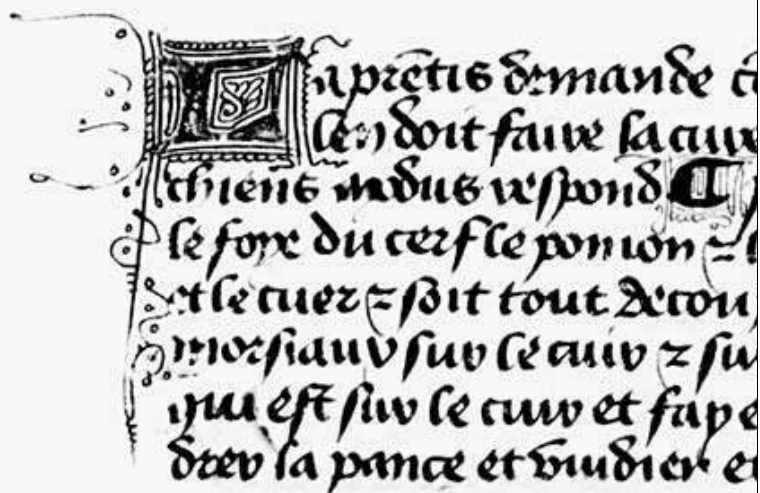 Laprẽtis demande cõ
len doit faire la cure
chiens modus respond ¶
le foye du cerf le pomon ⁊ l
et le cuer ⁊ soit tout decou
morsiaux sur le cuir ⁊ su
qui est sur le cuir et fay e
drer la pance et vuidier et